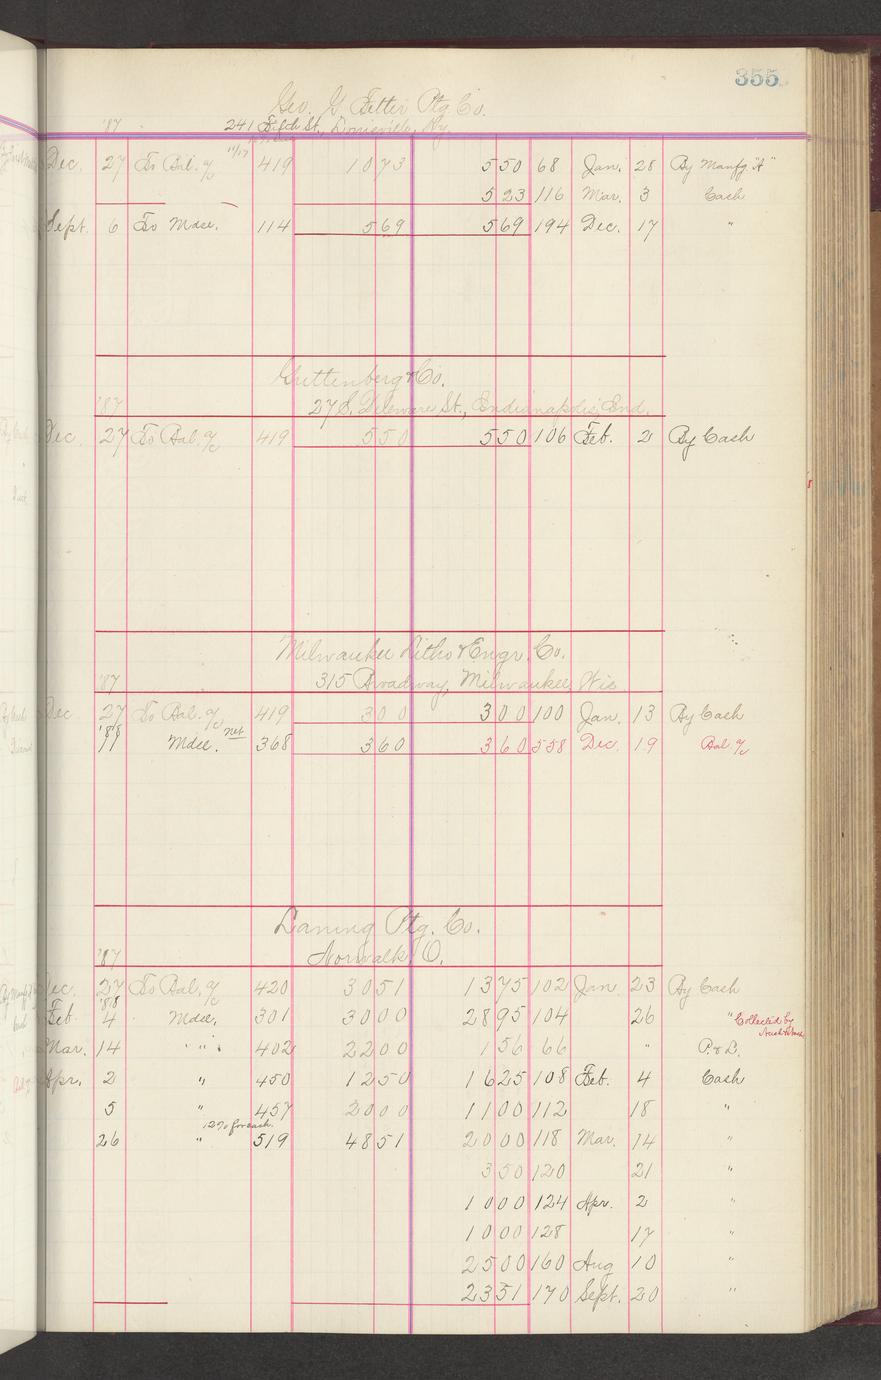 355
Geo. G. Fetter Ptg. Co.
'87 241 Fifth St., Louisville, Ky.
Dec. 27 To Bal. a/c 11/17 419 1073 550 68 Jan. 28 By Manfg "A"
523 116 Mar. 3 Cash
Sept. 6 To Mdse. 114 569 569 194 Dec. 17 "
Guttenberg & Co.
'87 27 S. Deleware St., Indianapolis, Ind.
Dec. 27 To Bal. a/c 419 550 550 106 Feb. 2 By Cash
Milwaukee Litho & Engr. Co.
'87 315 Broadway, Milwaukee, Wis
Dec. 27 To Bal. a/c 419 300 300 100 Jan. 13 By Cash
'88 11 Mdse. net 368 360 360 558 Dec. 19 Bal. a/c
Laning Ptg. Co.
'87 Norwalk, O.
Dec. 27 To Bal. a/c 420 3051 1375 102 Jan 23 By Cash
'88
Feb. 4 Mdse. 301 3000 2895 104 26 " Collected by
Mar. 14 " " 402 2200 156 66 " P. & L.
Apr. 2 " 450 1250 1625 108 Feb. 4 Cash
5 " 457 2000 1100 112 18 "
26 " 12% for cash. 519 4851 2000 118 Mar. 14 "
350 120 21 "
1000 124 Apr. 2 "
1000 128 17 "
2500 160 Aug 10 "
2351 170 Sept. 20 "